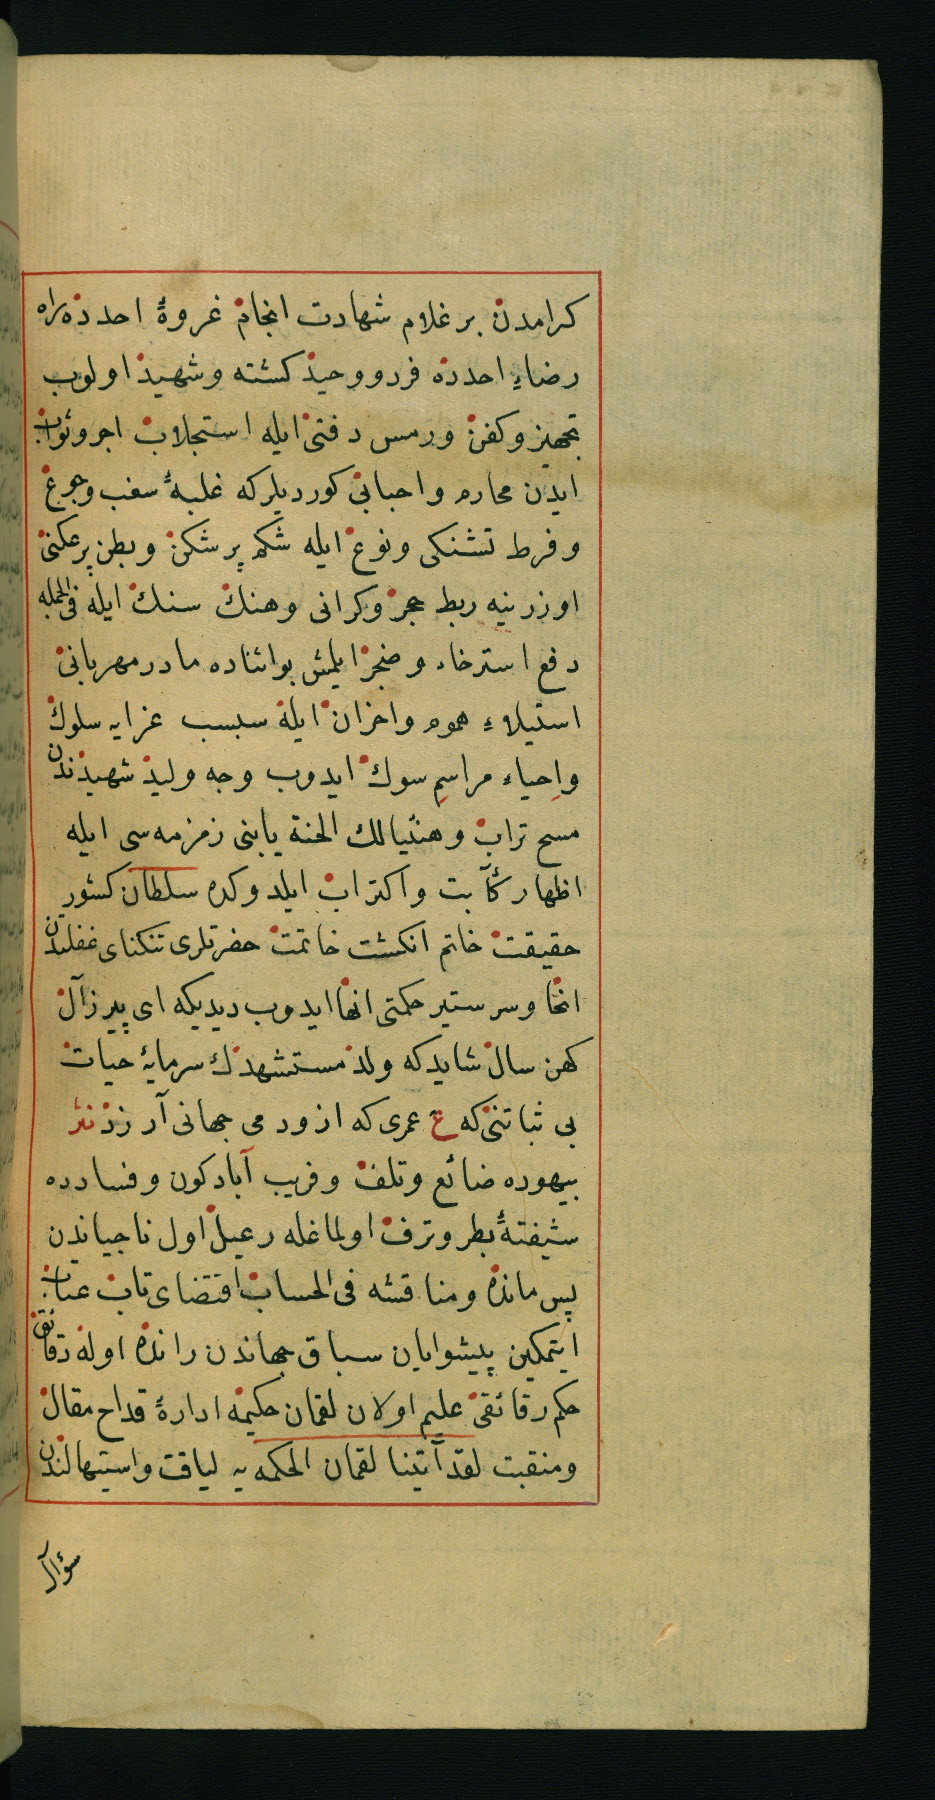 كرامدن بر غلام شهادت انجام غزوۀ احدده راه
رضاء احدده فرد و وحيد كشته و شهيد اولوب
تجهيز و كفن و رمس دفنى ايله استجلاب اجر و ثواب
ايدن محارم و احبابى كورديلر كه غلبۀ سغب و جوع
و فرط تشنكى و نوع ايله شكم پر شكن و بطن پر عكنى
اوزرينه ربط حجر و كرانى و هنك سنك ايله فى الجمله
دفع استرخاء و ضجر ايلمش بو اثناده مادر مهربانى
استيلاء هموم و احزان ايله سبسب عزايه سلوك
و احياء مراسم سوك ايدوب وجه وليد شهيدندن
مسح تراب و هنيئا لك الجنة يا بنى زمزمه سى ايله
اظهار كآبت و اكتراب ايلدوكده سلطان كشور
حقيقت خاتم انكشت خاتمت حضرتلرى تنكناى غفلتدن
انحا و سر ستير حكمتى انها ايدوب ديديكه اى پير زال
كهن سال شايد كه ولد مستشهدك سرمايۀ حيات
بى ثباتنى كه ع عمرى كه ازو دمى جهانى آرزد نثر
بيهوده ضائع و تلف و فريب آباد كون و فسادده
شيفتۀ بطر و ترف اولماغله رعيل اول ناجياندن
پس مانده و مناقشه فى الحساب اقتضاى تاب عتاب
ايتمكين پيشوايان سباق جهاندن رانده اوله دقائق
حكم رقائقى عليم اولان لقمان حكيمه ادارۀ قداح مقال
و منقبت لقد آتينا لقمان الحكمه يه لياقت و استيهالندن
سؤال